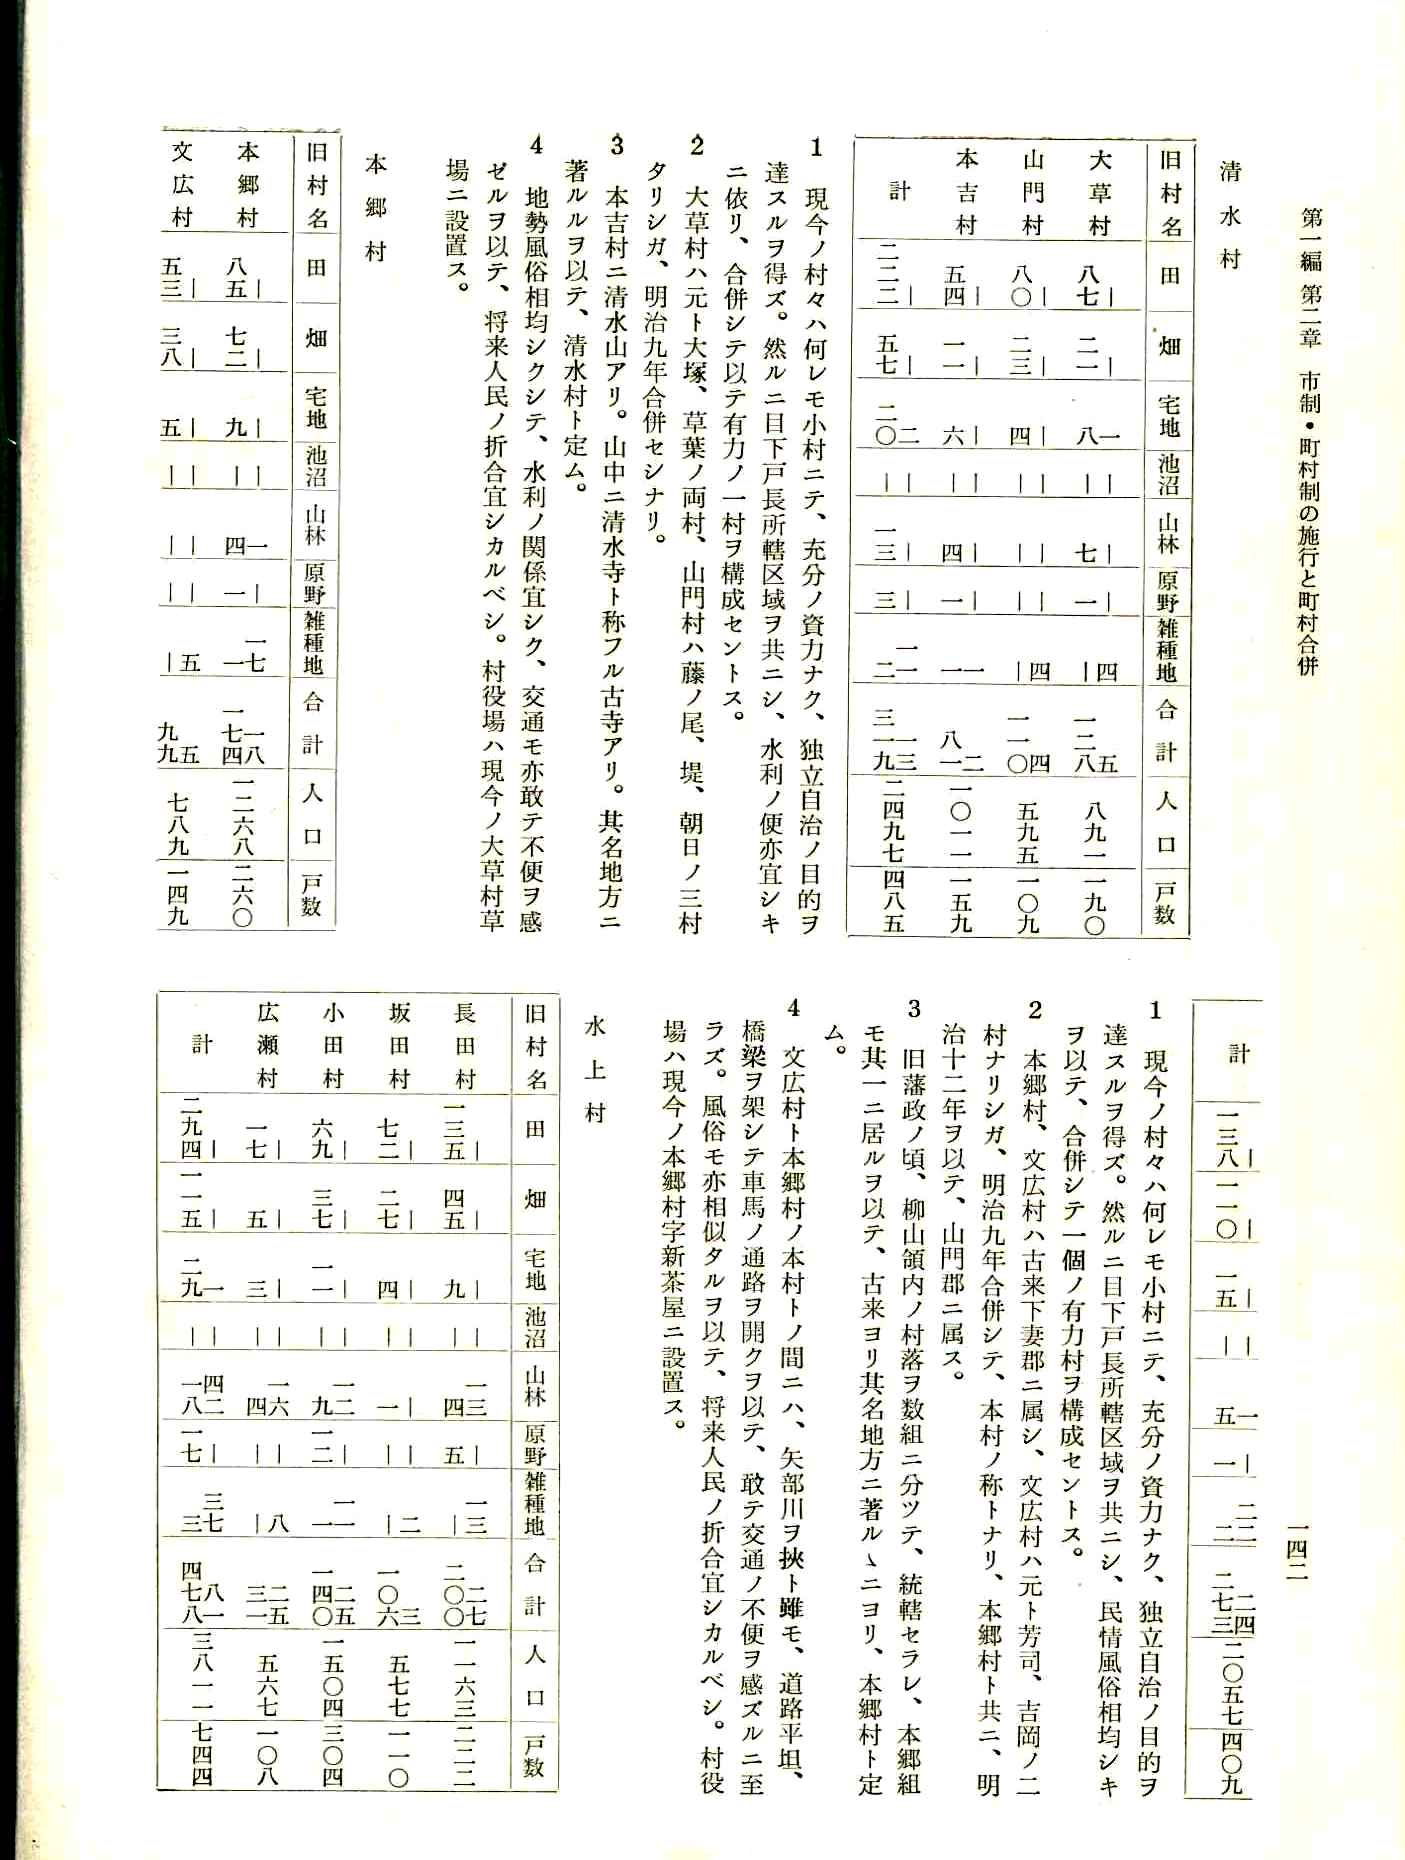 第一編 第二章 市制・町村制の施行と町村合併
一四二
清水村
旧村名 田 畑 宅地 池沼 山林 原野 雑種地 合計 人口 戸数
大草村 ｜ 八七 ｜ 二一 一 八 ｜ ｜ ｜ 七 ｜ 一 四 ｜ 五 一二八 八九一 一九〇
山門村 ｜ 八〇 ｜ 二三 ｜ 四 ｜ ｜ ｜ ｜ ｜ ｜ 四 ｜ 四 一一〇 五九五 一〇九
本吉村 ｜ 五四 ｜ 一一 ｜ 六 ｜ ｜ ｜ 四 ｜ 一 一 一 二 八一 一〇一一 一五九
計 ｜ 二二二 ｜ 五七 二 二〇 ｜ ｜ ｜ 一三 ｜ 三 一一 二 一三 三一九 二四九七 四八五
1 現今ノ村々ハ何レモ小村ニテ、充分ノ資力ナク、独立自治ノ目的ヲ
達スルヲ得ズ。然ルニ目下戸長所轄区域ヲ共ニシ、水利ノ便亦宜シキ
ニ依リ、合併シテ以テ有力ノ一村ヲ構成セントス。
2 大草村ハ元ト大塚、草葉ノ両村、山門村ハ藤ノ尾、堤、朝日ノ三村
タリシガ、明治九年合併セシナリ。
3 本吉村ニ清水山アリ。山中ニ清水寺ト称フル古寺アリ。其名地方ニ
著ルルヲ以テ、清水村ト定ム。
4 地勢風俗相均シクシテ、水利ノ関係宜シク、交通モ亦敢テ不便ヲ感
ゼルヲ以テ、将来人民ノ折合宜シカルベシ。村役場ハ現今ノ大草村草
場ニ設置ス。
本郷村
旧村名 田 畑 宅地 池沼 山林 原野 雑種地 合計 人口 戸数
本郷村 ｜ 八五 ｜ 七二 ｜ 九 ｜ ｜ 一 四 ｜ 一 一七 一 一八 一七四 一二六八 二六〇
文広村 ｜ 五三 ｜ 三八 ｜ 五 ｜ ｜ ｜ ｜ ｜ ｜ 五 ｜ 五 九九 七八九 一四九
計 ｜ 一三八 ｜ 一一〇 ｜ 一五 ｜ ｜ 一 五 ｜ 一 二二 二 二四 二七三 二〇五七 四〇九
1 現今ノ村々ハ何レモ小村ニテ、充分ノ資力ナク、独立自治ノ目的ヲ
達スルヲ得ズ。然ルニ目下戸長所轄区域ヲ共ニシ、民情風俗相均シキ
ヲ以テ、合併シテ一個ノ有力村ヲ構成セントス。
2 本郷村、文広村ハ古来下妻郡ニ属シ、文広村ハ元ト芳司、吉岡ノ二
村ナリシガ、明治九年合併シテ、本村ノ称トナリ、本郷村ト共ニ、明
治十二年ヲ以テ、山門郡ニ属ス。
3 旧藩政ノ頃、柳山領内ノ村落ヲ数組ニ分ツテ、統轄セラレ、本郷組
モ其一ニ居ルヲ以テ、古来ヨリ其名地方ニ著ルヽニヨリ、本郷村ト定
ム。
4 文広村ト本郷村ノ本村トノ間ニハ、矢部川ヲ挾ト雖モ、道路平坦、
橋梁ヲ架シテ車馬ノ通路ヲ開クヲ以テ、敢テ交通ノ不便ヲ感ズルニ至
ラズ。風俗モ亦相似タルヲ以テ、将来人民ノ折合宜シカルベシ。村役
場ハ現今ノ本郷村字新茶屋ニ設置ス。
水上村
旧村名 田 畑 宅地 池沼 山林 原野 雑種地 合計 人口 戸数
長田村 ｜ 一三五 ｜ 四五 ｜ 九 ｜ ｜ 一三 四 ｜ 五 一三 ｜ 二七 二〇〇 一一六三 二二二
坂田村 ｜ 七二 ｜ 二七 ｜ 四 ｜ ｜ ｜ 一 ｜ ｜ 二 ｜ 三 一〇六 五七七 一一〇
小田村 ｜ 六九 ｜ 三七 ｜ 一一 ｜ ｜ 一二 九 ｜ 一二 一一 一 二五 一四〇 一五〇四 三〇四
広瀬村 ｜ 一七 ｜ 五 ｜ 三 ｜ ｜ 一六 四 ｜ ｜ 八 ｜ 二五 三一 五六七 一〇八
計 ｜ 二九四 ｜ 一一五 一 二九 ｜ ｜ 四二 一八 ｜ 一七 三七 三 八一 四七八 三八一一 七四四